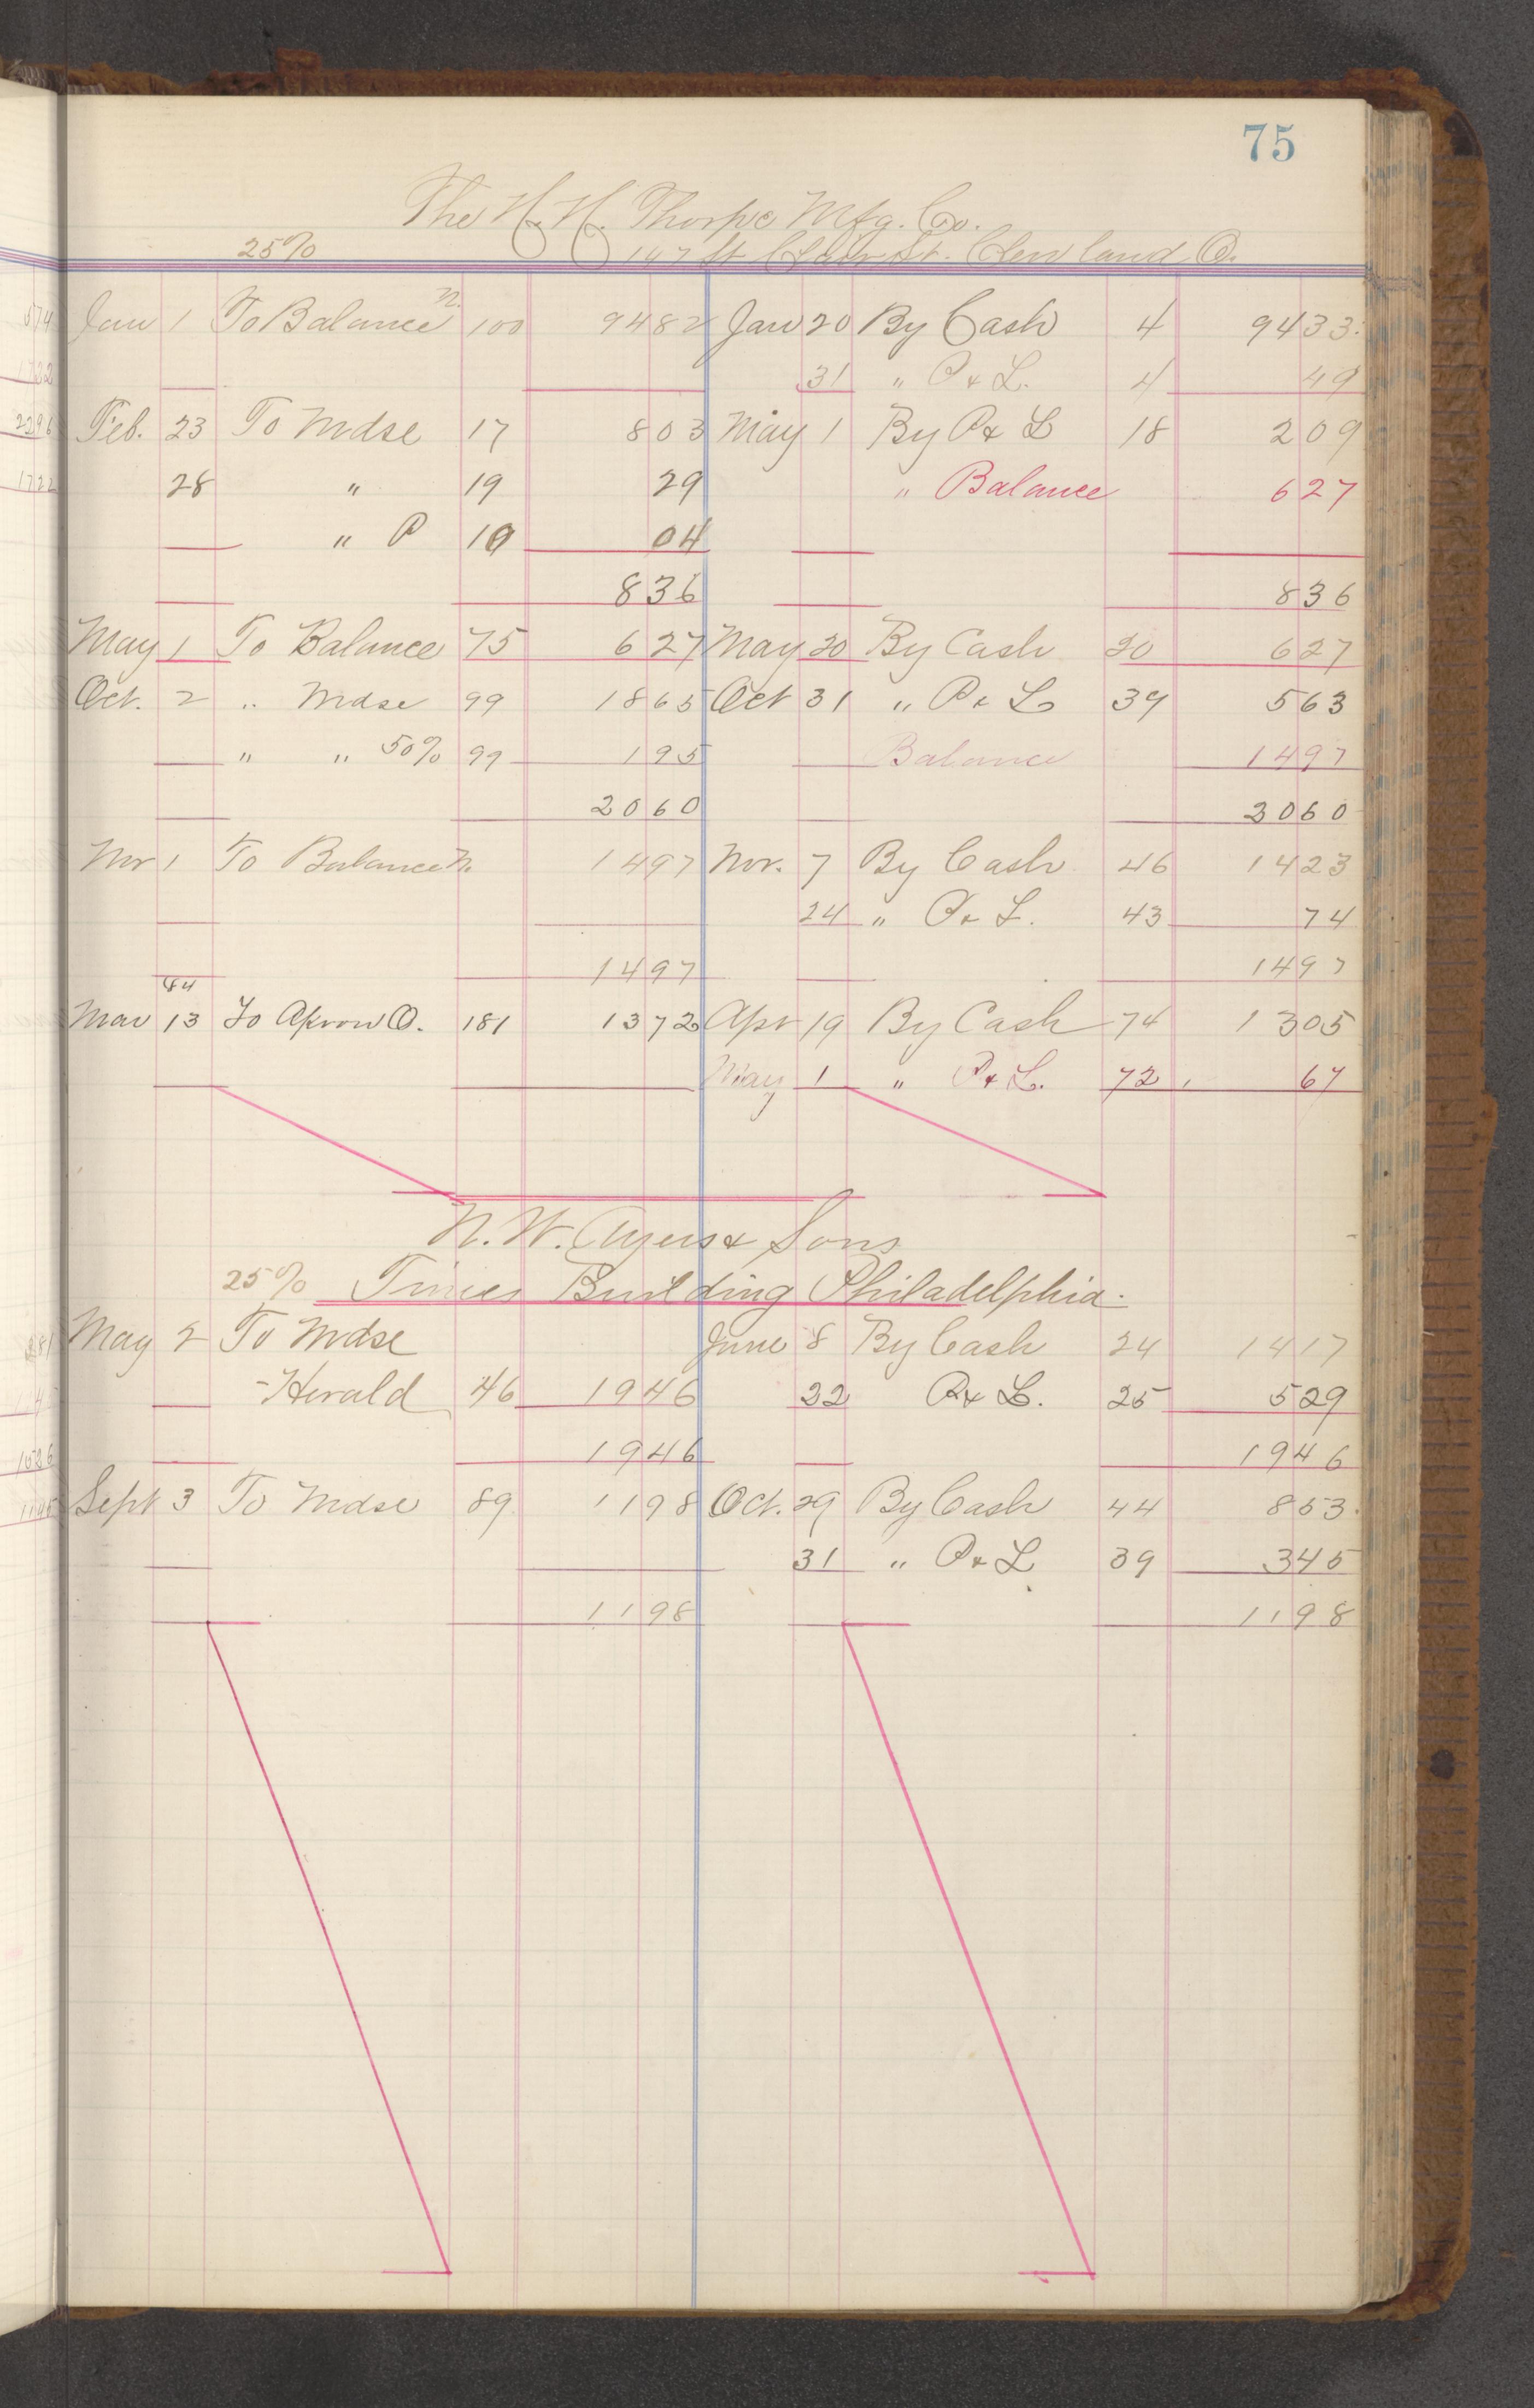 75
The H. H. Thorpe Mfg. Co.
25% 147 St Clair St. Cleveland O.
Jan 1 To Balance n. 100 9482 Jan 20 By Cash 4 9433
31 " P & L. 4 49
Feb. 23 To Mdse 17 803 May 1 By P & L 18 209
28 " 19 29 " Balance 627
" P 19 04
836 836
May 1 To Balance 75 627 May 20 By Cash 20 627
Oct. 2 " Mdse 99 1865 Oct 31 " P & L 39 563
" " 50% 99 195 Balance 1497
2060 2060
Nov 1 To Balance n. 1497 Nov. 7 By Cash 46 1423
24 " P & L. 43 74
1497 1497
84
Mar 13 To Akron O. 181 1372 Apr 19 By Cash 74 1305
May 1 " P & L. 72 67
N. W. Ayers & Sons
25% Times Building Philadelphia.
May 2 To Mdse June 8 By Cash 24 1417
-Herald 46 1946 22 P & L. 25 529
1946 1946
Sept 3 To Mdse 89 1198 Oct. 29 By Cash 44 853
31 " P & L 39 345
1198 1198